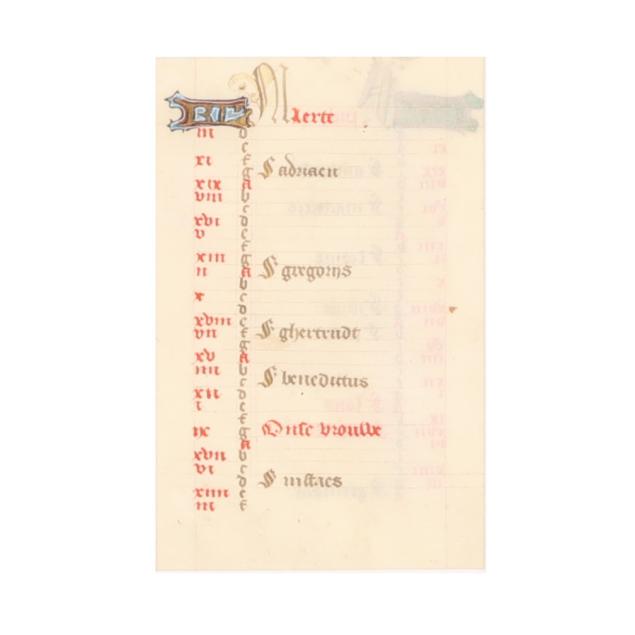 KL Maerte
iii d
e
xi f
g S adriaen
xix a
viii b
c
xvi d
v e
f
xiii g
ii a S gregorius
b
x c
d
xviii e
vii f S ghertrudt
g
xv a
iiii b
c S benedictus
xii d
i e
f
ix g Onse vrouwe
a
xvii b
vi c
d S
xiiii e
iii f